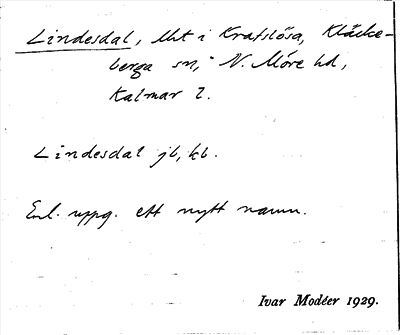 Lindesdal, lht i Krafslösa, Kläcke-
berga sn, N. Möre hd,
Kalmar l.
Lindesdal jb, kb.
Enl. uppg. ett nytt namn.
Ivar Modéer 1929.